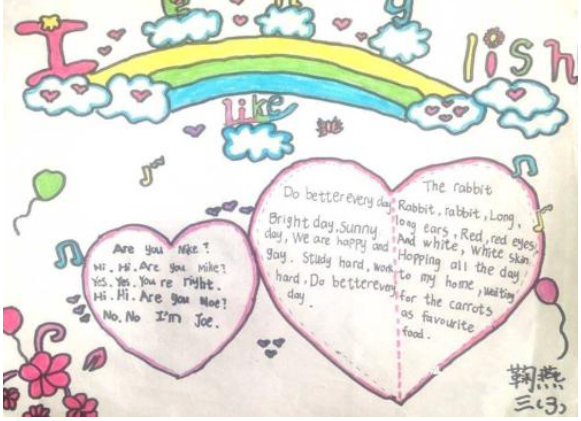 I Eng lish
like
Are you Mike?
Hi. Hi. Are you Mike?
Yes. Yes. You re right.
Hi. Hi. Are you Moe?
No. No I'm Joe.
Do better every day
Bright day, Sunny
day, We are happy and
gay. Study hard, work
hard, Do better every
day.
The rabbit
Rabbit, rabbit, Long,
long ears, Red, red eyes,
And white, white skin
Hopping all the day
to my home, waiting
for the carrots
as favourite
food.
鞠燕
三(3)